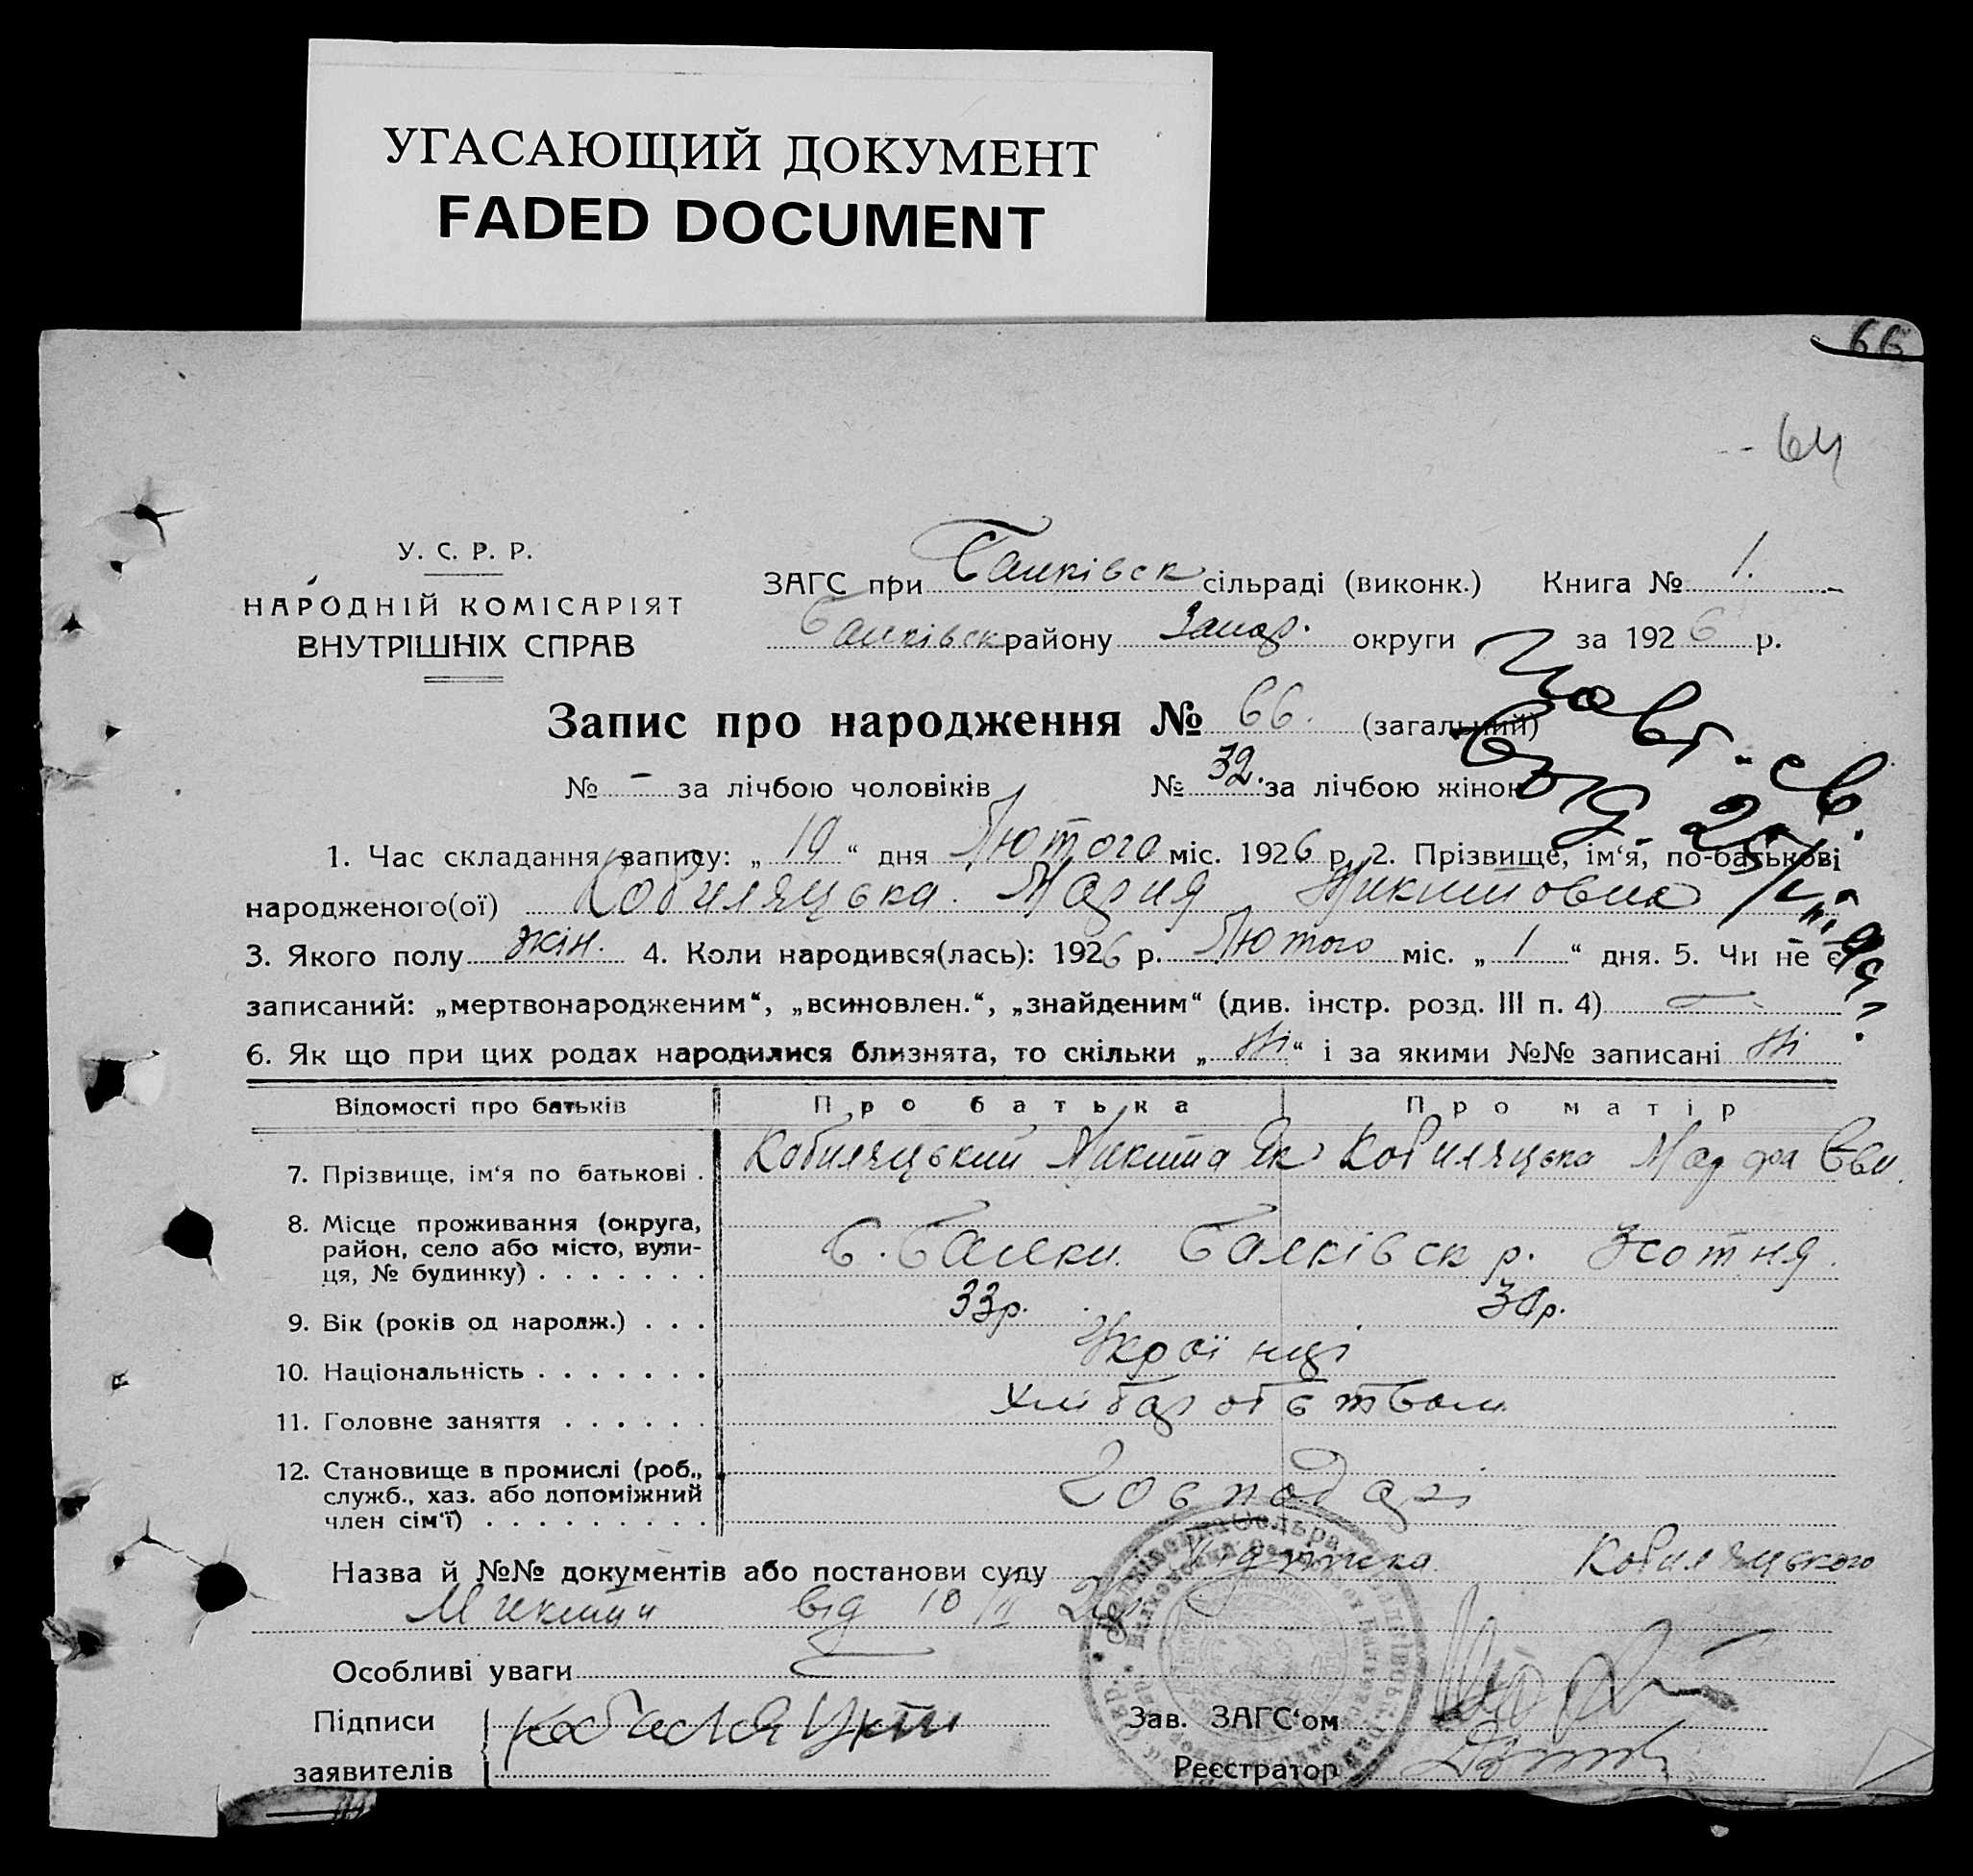 УГАСАЮЩИЙ ДОКУМЕНТ
FADED DOCUMENT
66
64
У. С. Р. Р.
НАРОДНІЙ КОМІСАРІЯТ
ВНУТРІШНІХ СПРАВ
ЗАГС при Балківск сільраді (виконк.) Книга № 1.
Балківск району Запор. округи за 1926 р.
Запис про народження № 66. (загальний)
№ – за лічбою чоловіків № 32. за лічбою жінок
1. Час складання запису: „ 19 “ дня Лютого міс. 1926 р. 2. Прізвище, ім‘я, по-батькові
народженого(ої) Кобиляцька. Мария Микитовна
3. Якого полу жін. 4. Коли народився(лась): 1926 р. Лютого міс. „ 1 “ дня. 5. Чи не є
записаний: „мертвонародженим“, „всиновлен.“, „знайденим“ (див. інстр. розд. III п. 4) —
6. Як що при цих родах народилися близнята, то скільки „ Ні “ і за якими №№ записані Ні
Відомості про батьків Про батька Про матір
7. Прізвище, ім‘я по батькові . Кобиляцький Микита Як Кобиляцька Марфа Єви.
8. Місце проживання (округа,
район, село або місто, вули-
ця, № будинку) . . . . . . . Б. Балки. Балківск р. 3 сотня.
9. Вік (років од народж.) . . . 33 р. 30 р.
10. Національність . . . . . . . Украї нці
11. Головне заняття . . . . . .
12. Становище в промислі (роб.,
служб., хаз. або допоміжний
член сім‘ї) . . . . . . . . . Господарі
Назва й №№ документів або постанови суду Кобиляцького
Микити від 10/II 26 р.
Особливі уваги —
Підписи
заявителів
Зав. ЗАГС‘ом
Реєстратор